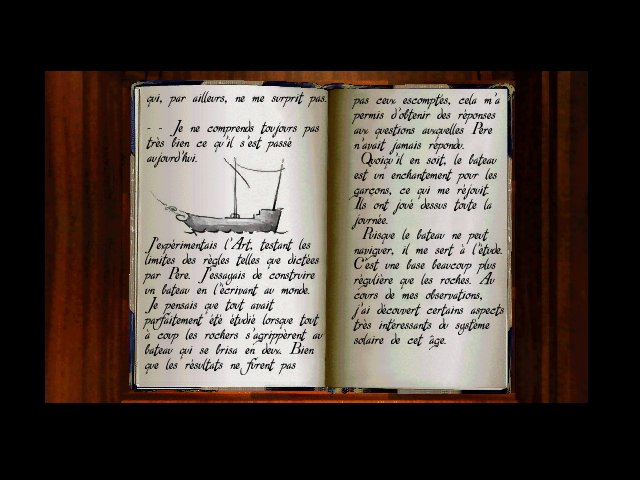 qui, par ailleurs, ne me surprit pas.
- - Je ne comprends toujours pas
très bien ce qu'il s'est passé
aujourd'hui.
J'expérimentais l'Art, testant les
limites des règles telles que dictées
par Père. J'essayais de construire
un bateau en l'écrivant au monde.
Je pensais que tout avait
parfaitement été étudié lorsque tout
à coup les rochers s'agrippèrent au
bateau qui se brisa en deux. Bien
que les résultats ne furent pas
pas ceux escomptés, cela m'a
permis d'obtenir des réponses
aux questions auxquelles Père
n'avait jamais répondu.
Quoiqu'il en soit, le bateau
est un enchantement pour les
garçons, ce qui me réjouit.
Ils ont joué dessus toute la
journée.
Puisque le bateau ne peut
naviguer, il me sert à l'étude.
C'est une base beaucoup plus
régulière que les roches. Au
cours de mes observations,
j'ai découvert certains aspects
très intéressants du système
solaire de cet âge.